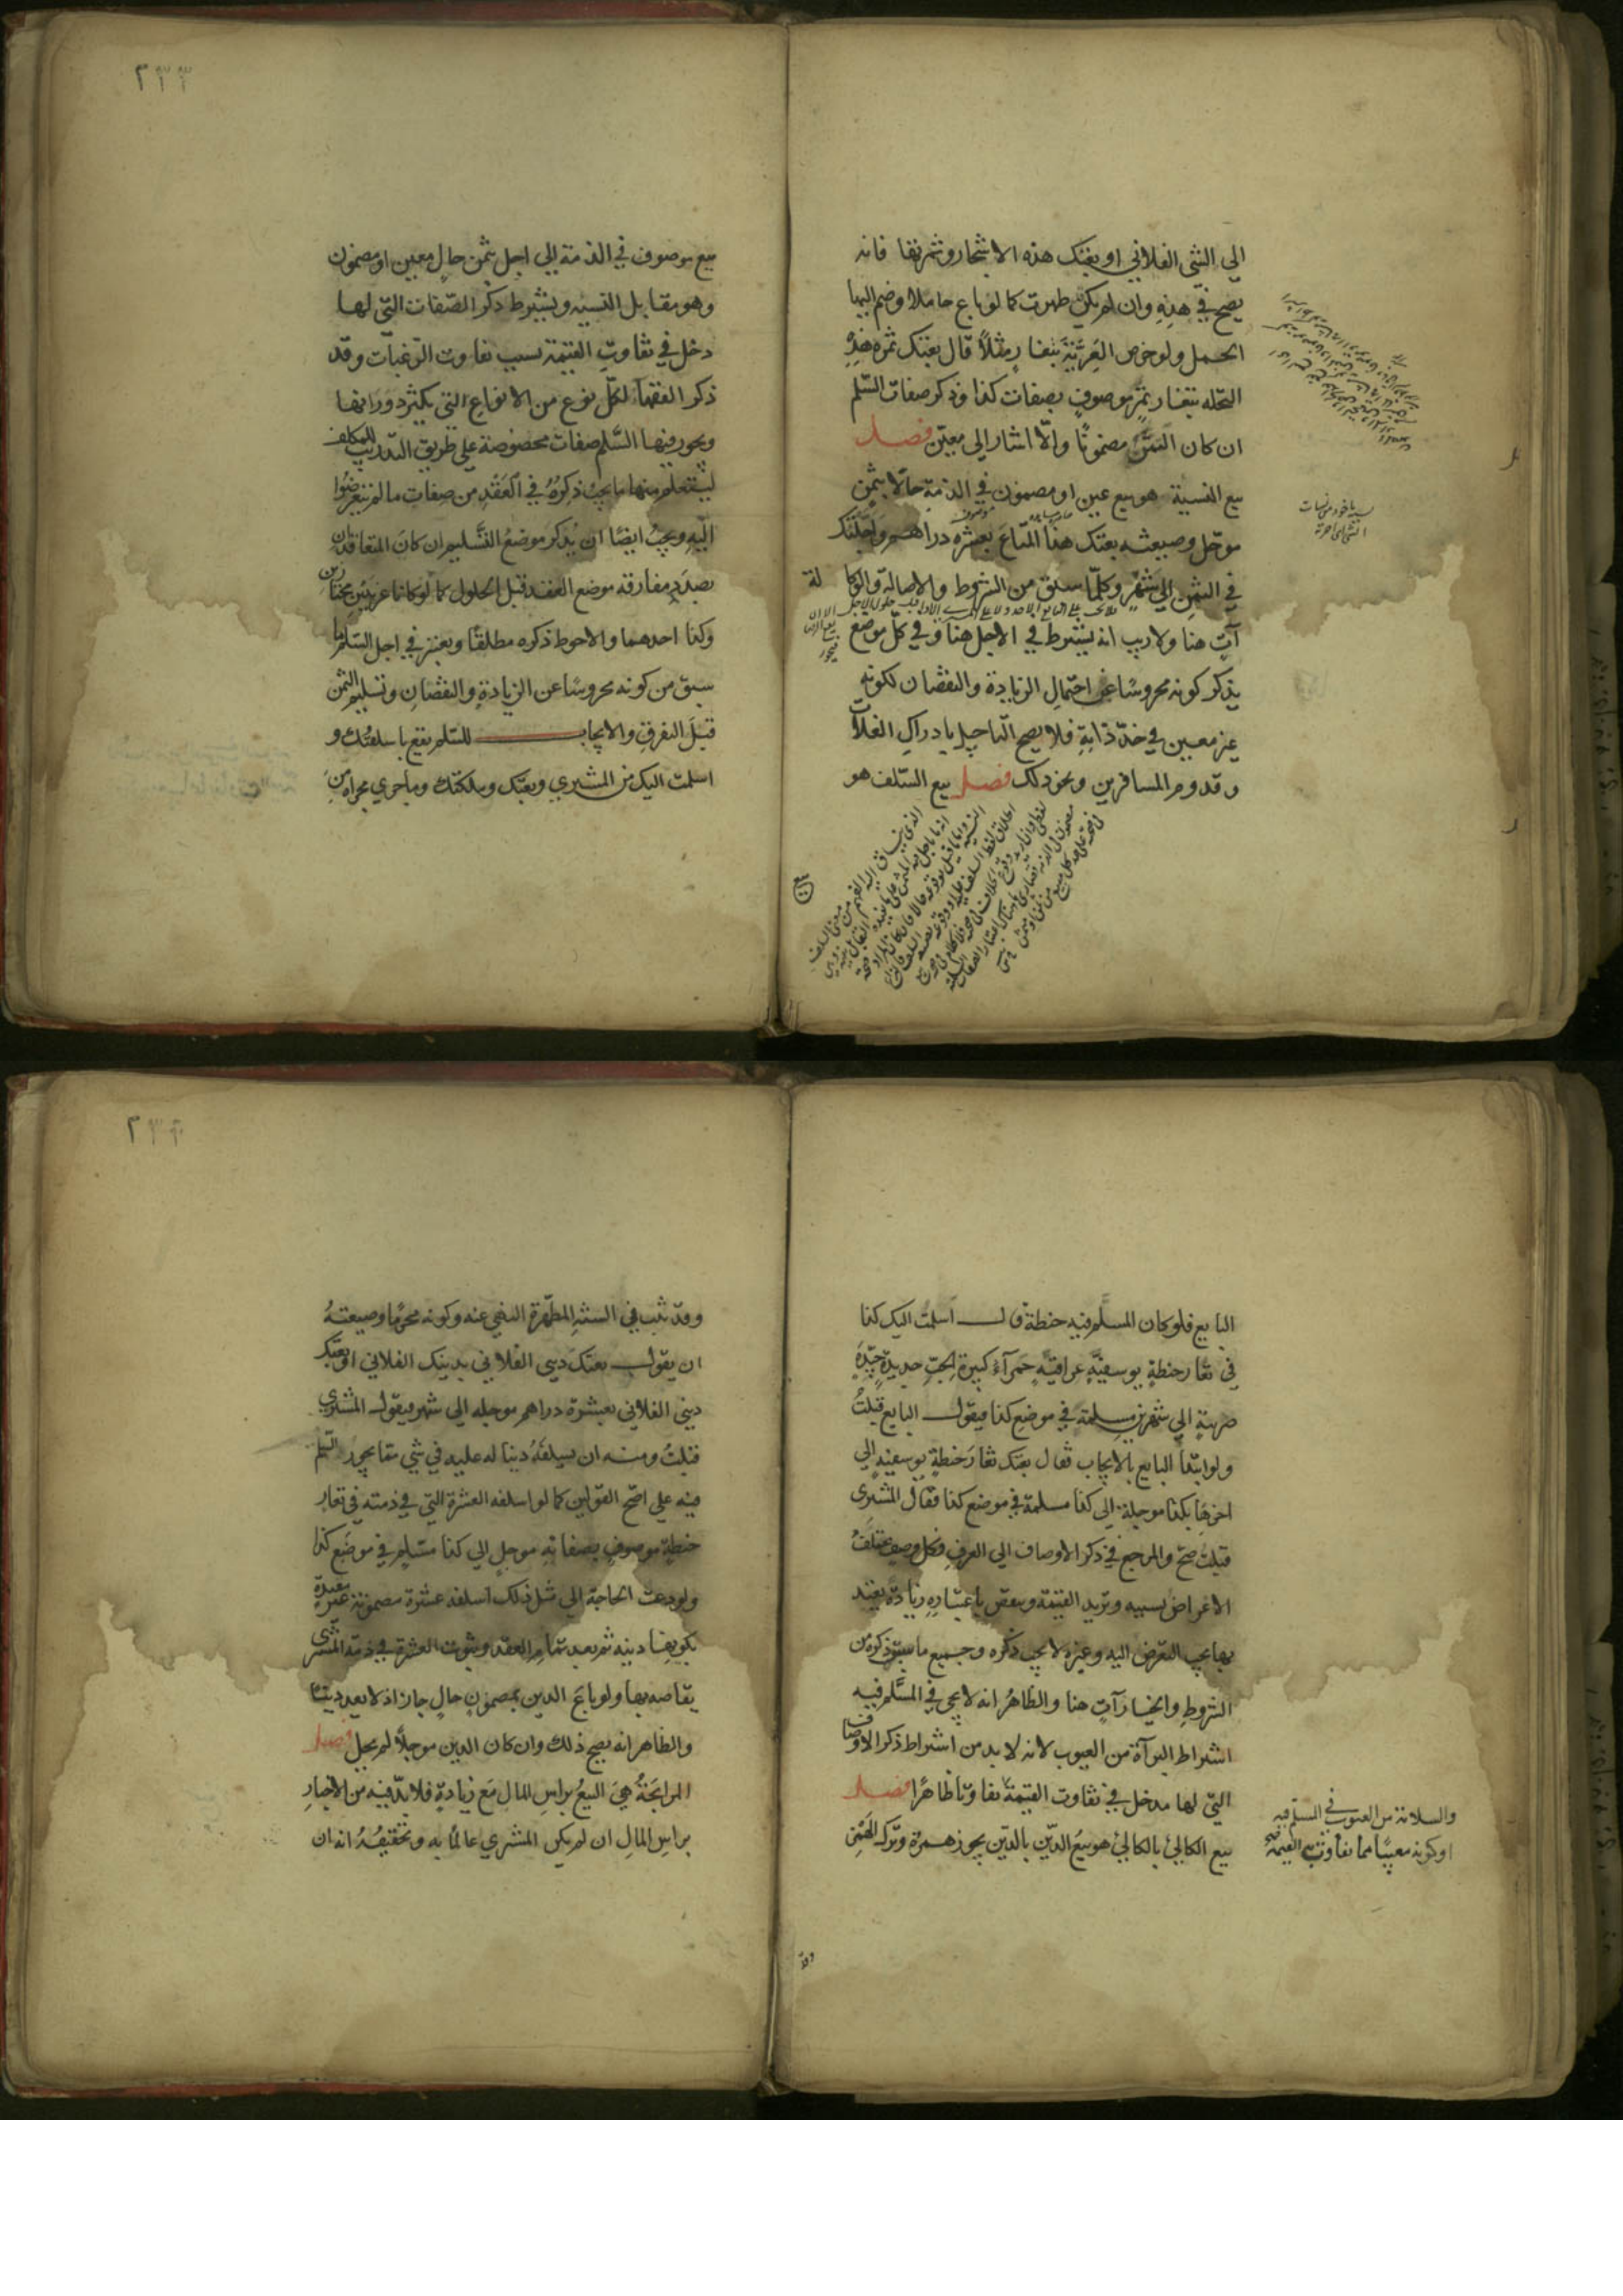 الى الشئ الفلاني او بعتك هذه الاشجار وثمرتها فانه
يصح في هذه وان لم يكن ظهرت كما لو باع حاملا وضم اليها
الحمل ولو خرص العرية بتغار مثلاً قال بعتك ثمرة هذه
النخله بتغار تمر موصوف بصفات كذا وذكر صفات السّلم
ان كان الثمن مضمونًا والّا اشار الى معين فصل
بيع النسية هو بيع عين او مضمون في الذمة حالا بثمن
موجّل وصيغته بعتك هذا المتاع بعشرة دراهم واجلتك
في الثمن الى شهر وكلّما سبق من الشروط والاصالة والوكا لة
آت هنا ولا ريب انه يشترط في الاجل هنا وفي كل موضع
يذكر كونه محروسًا عن احتمال الزيادة والنقصان لكونه
غير معين في حدّ ذاته فلا يصح التاجيل بادراك الغلات
وقدوم المسافرين ونحو ذلك فصل بيع السّلف هو
بيع
٢٣٣
بيع موصوف في الذمة الى اجل بثمن حال معين او مضمون
وهو مقابل النسيه ويشترط ذكر الصّفات التّي لها
دخل في تفاوت القيمة بسبب تفاوت الرّغبات وقد
ذكر الفقهآء لكلّ نوع من الانواع التي يكثر دورانها
ويجوز فيها السّلم صفات مخصوصة على طريق التدريب للمكلف
ليستعلم منها ما يجب ذكره في العقد من صفات ما لم يتعرضوا
اليه ويجب ايضًا ان يذكر موضع التّسليم ان كان المتعاقدان
بصدد مفارقة موضع العقد قبل الحلول كما لو كانا غريبين مجتازين
وكذا احدهما والاحوط ذكره مطلقًا ويعتبر في اجل السّلم ما
سبق من كونه محروسًا عن الزيادة والنقصان وتسليم الثمن
قبل التفرق والايجاب للسّلم يقع باسلفتك و
اسلمت اليك من المشتري وبعتك وملكتك وما جرى مجراه من
البايع فلو كان المسلم فيه حنطة قال اسلمت اليك كذا
في تغار حنطة يوسفيّة عراقية حمرآء كبيرة الحبّ جديدة جيّدة
صربية الى شهرين مسلمة في موضع كذا فيقول البايع قبلتُ
ولو ابتدأ البايع بالايجاب فقال بعتك تغار حنطة يوسفية الى
اخرها بكذا موجلة الى كذا مسلمة في موضع كذا فقال المشترى
قبلت صحّ والمرجع في ذكر الاوصاف الى العرف فكل وصف يختلف
الاغراض بسببه وتزيد القيمة وينقص باعتباره زيادة يعتد
بها يجب التعرض اليه وغيره لا يجب ذكره وجميع ما سبق ذكره من
الشروط والخيار آت هنا والظاهر انه لا يجي في المسّلم فيه
اشتراط البرآة من العيوب لانه لا بد من اشتراط ذكر الاوصاف
التيّ لها مدخل في تفاوت القيمة تفاوتًا ظاهرًا فصل
بيع الكالئ بالكالئ هو بيع الدّين بالدّين يجوز همزة وترك الهمز
والسلامة من العيوب في المسلم فيه
او كونه معيبًا مما يتفاوت به القيمة
وقد
٢٣٤
وقد ثبت في السنة المطهّرة النهي عنه وكونه محرمًا وصيغته
ان يقول بعتك ديني الفلاني بدينك الفلاني او بعتك
ديني الفلاني بعشرة دراهم موجله الى شهر فيقول المشتري
قبلتُ ومنه ان يسلفه دينا له عليه في شي مما يجوز السّلم
فيه على اصّح القولين كما لو اسلفه العشرة التي في ذمته في تغار
حنطة موصوف بصفاته موجل الى كذا مسّلم في موضع كذا
ولو دعت الحاجة الى مثل ذلك اسلفه عشرة مضمونة غير مقيدة
بكونها دينه ثم بعد تمام العقد وثبوت العشرة في ذمّة المشترى
يقاصه بها ولو باع الدين بمضمون حال جاز اذ لا يعد دينًا
والظاهر انه يصح ذلك وان كان الدين موجلاً لم يحل فصل
المرابحة هي البيع براس المال مع زيادة فلا بدّ فيه من الاخبار
براس المال ان لم يكن المشتري عالمًا به وتحقيقه انه ان